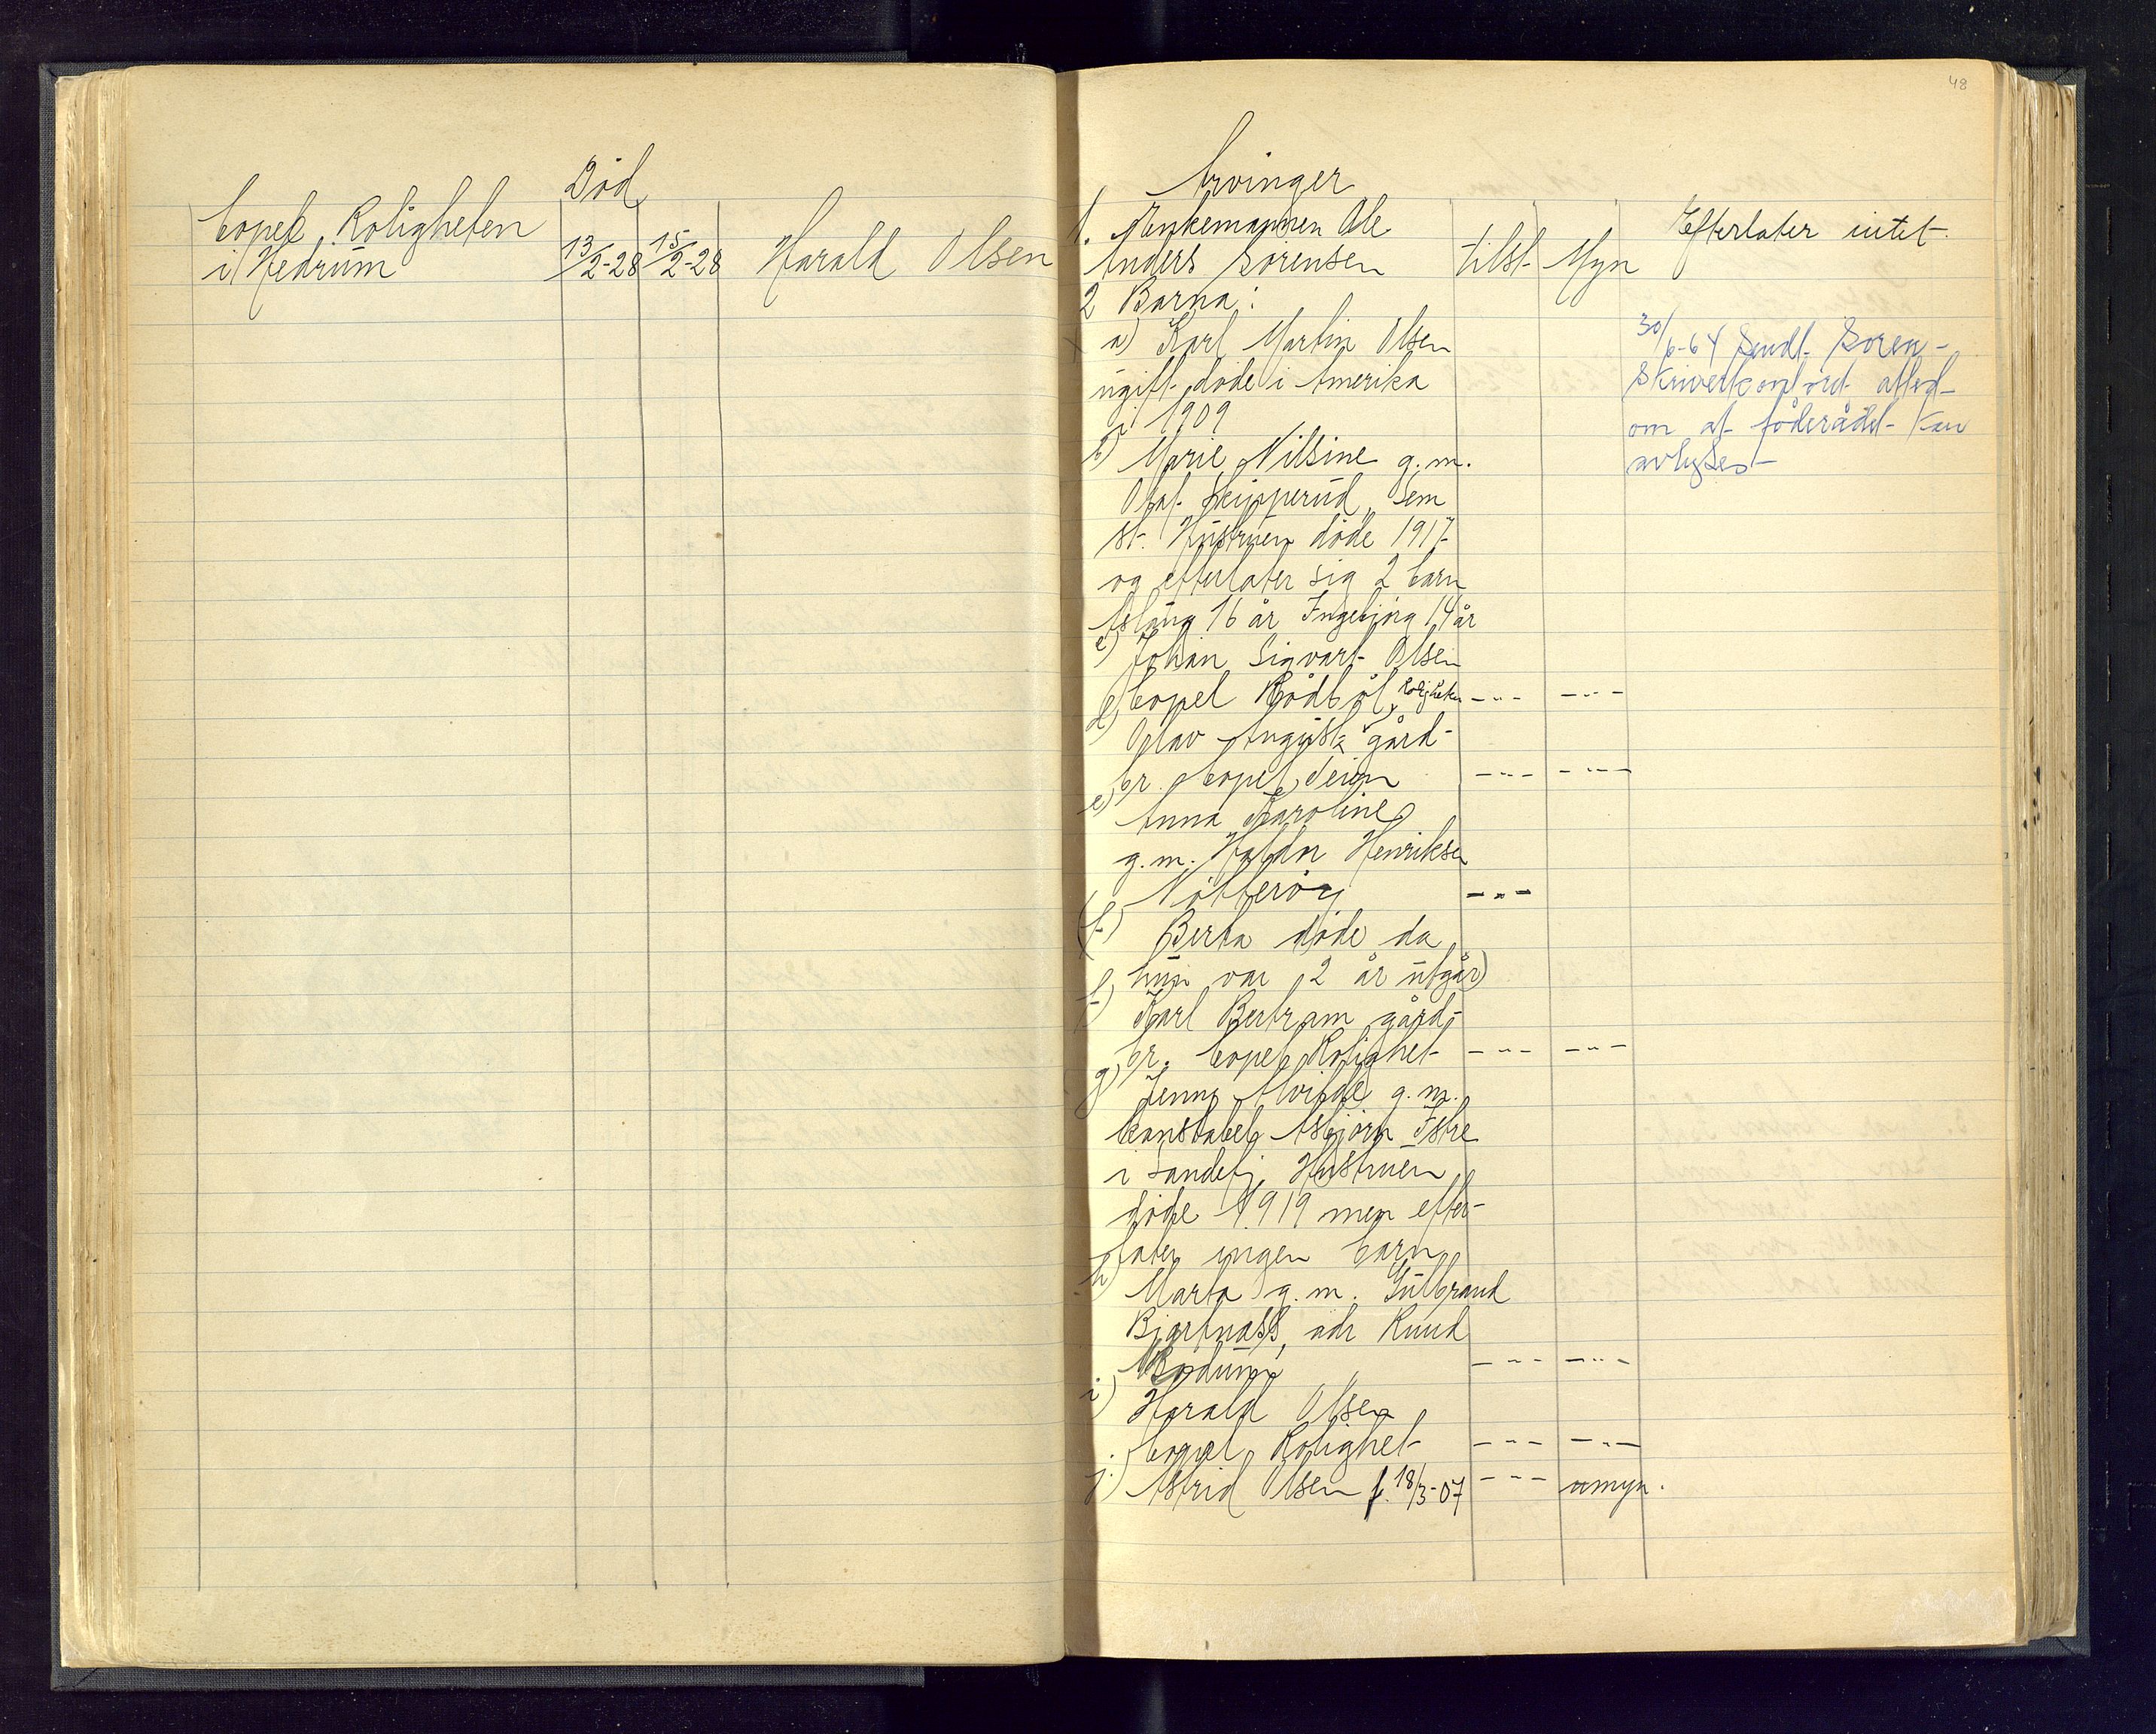 Død
bopel Roligheten
i Hedrum
13/2-28
15/2-28
Harald Olsen
48
Arvinger
1. Enkemannen Ole
Anders Sørensen
tilst. Myn
Efterlater intet.
2 Barna:
a) Karl Martin Olsen
ugift døde i Amerika
i 1909
b) Marie Nilsine g.m.
Olaf Skipperud, Sem
st. Hustruen døde 1917
og efterlater sig 2 barn
Aslaug 16 år Ingebjørg 14 år
c) Johan Sigvart Olsen
bopel Bødbøl, Roligheten -"- -"-
d) Olav August gård-
br. bopel Seien -"- -"-
e) Anna Karoline
g.m. Halfdn Henriksen
Nøtterøy -"-
(f) Berta døde da
hun var 2 år utgår)
f) Karl Bertram gård-
br. bopel Rolighet -"- -"-
g) Jenny Alvilde g.m.
konstabel Asbjørn Istre
i Sandefj. Hustruen
døde 1919 men efter-
later ingen barn
h) Marta g.m. Gulbrand
Bjertnæss, adr Ruud
Modum -"- -"-
i) Harald Olsen
bopel Rolighet -"- -"-
j) Astrid Olsen f. 18/3-07 -"- umyn.
30/6-64 Sendt Soren-
skriverkontoret atted
om at føderådet kan
avlyses